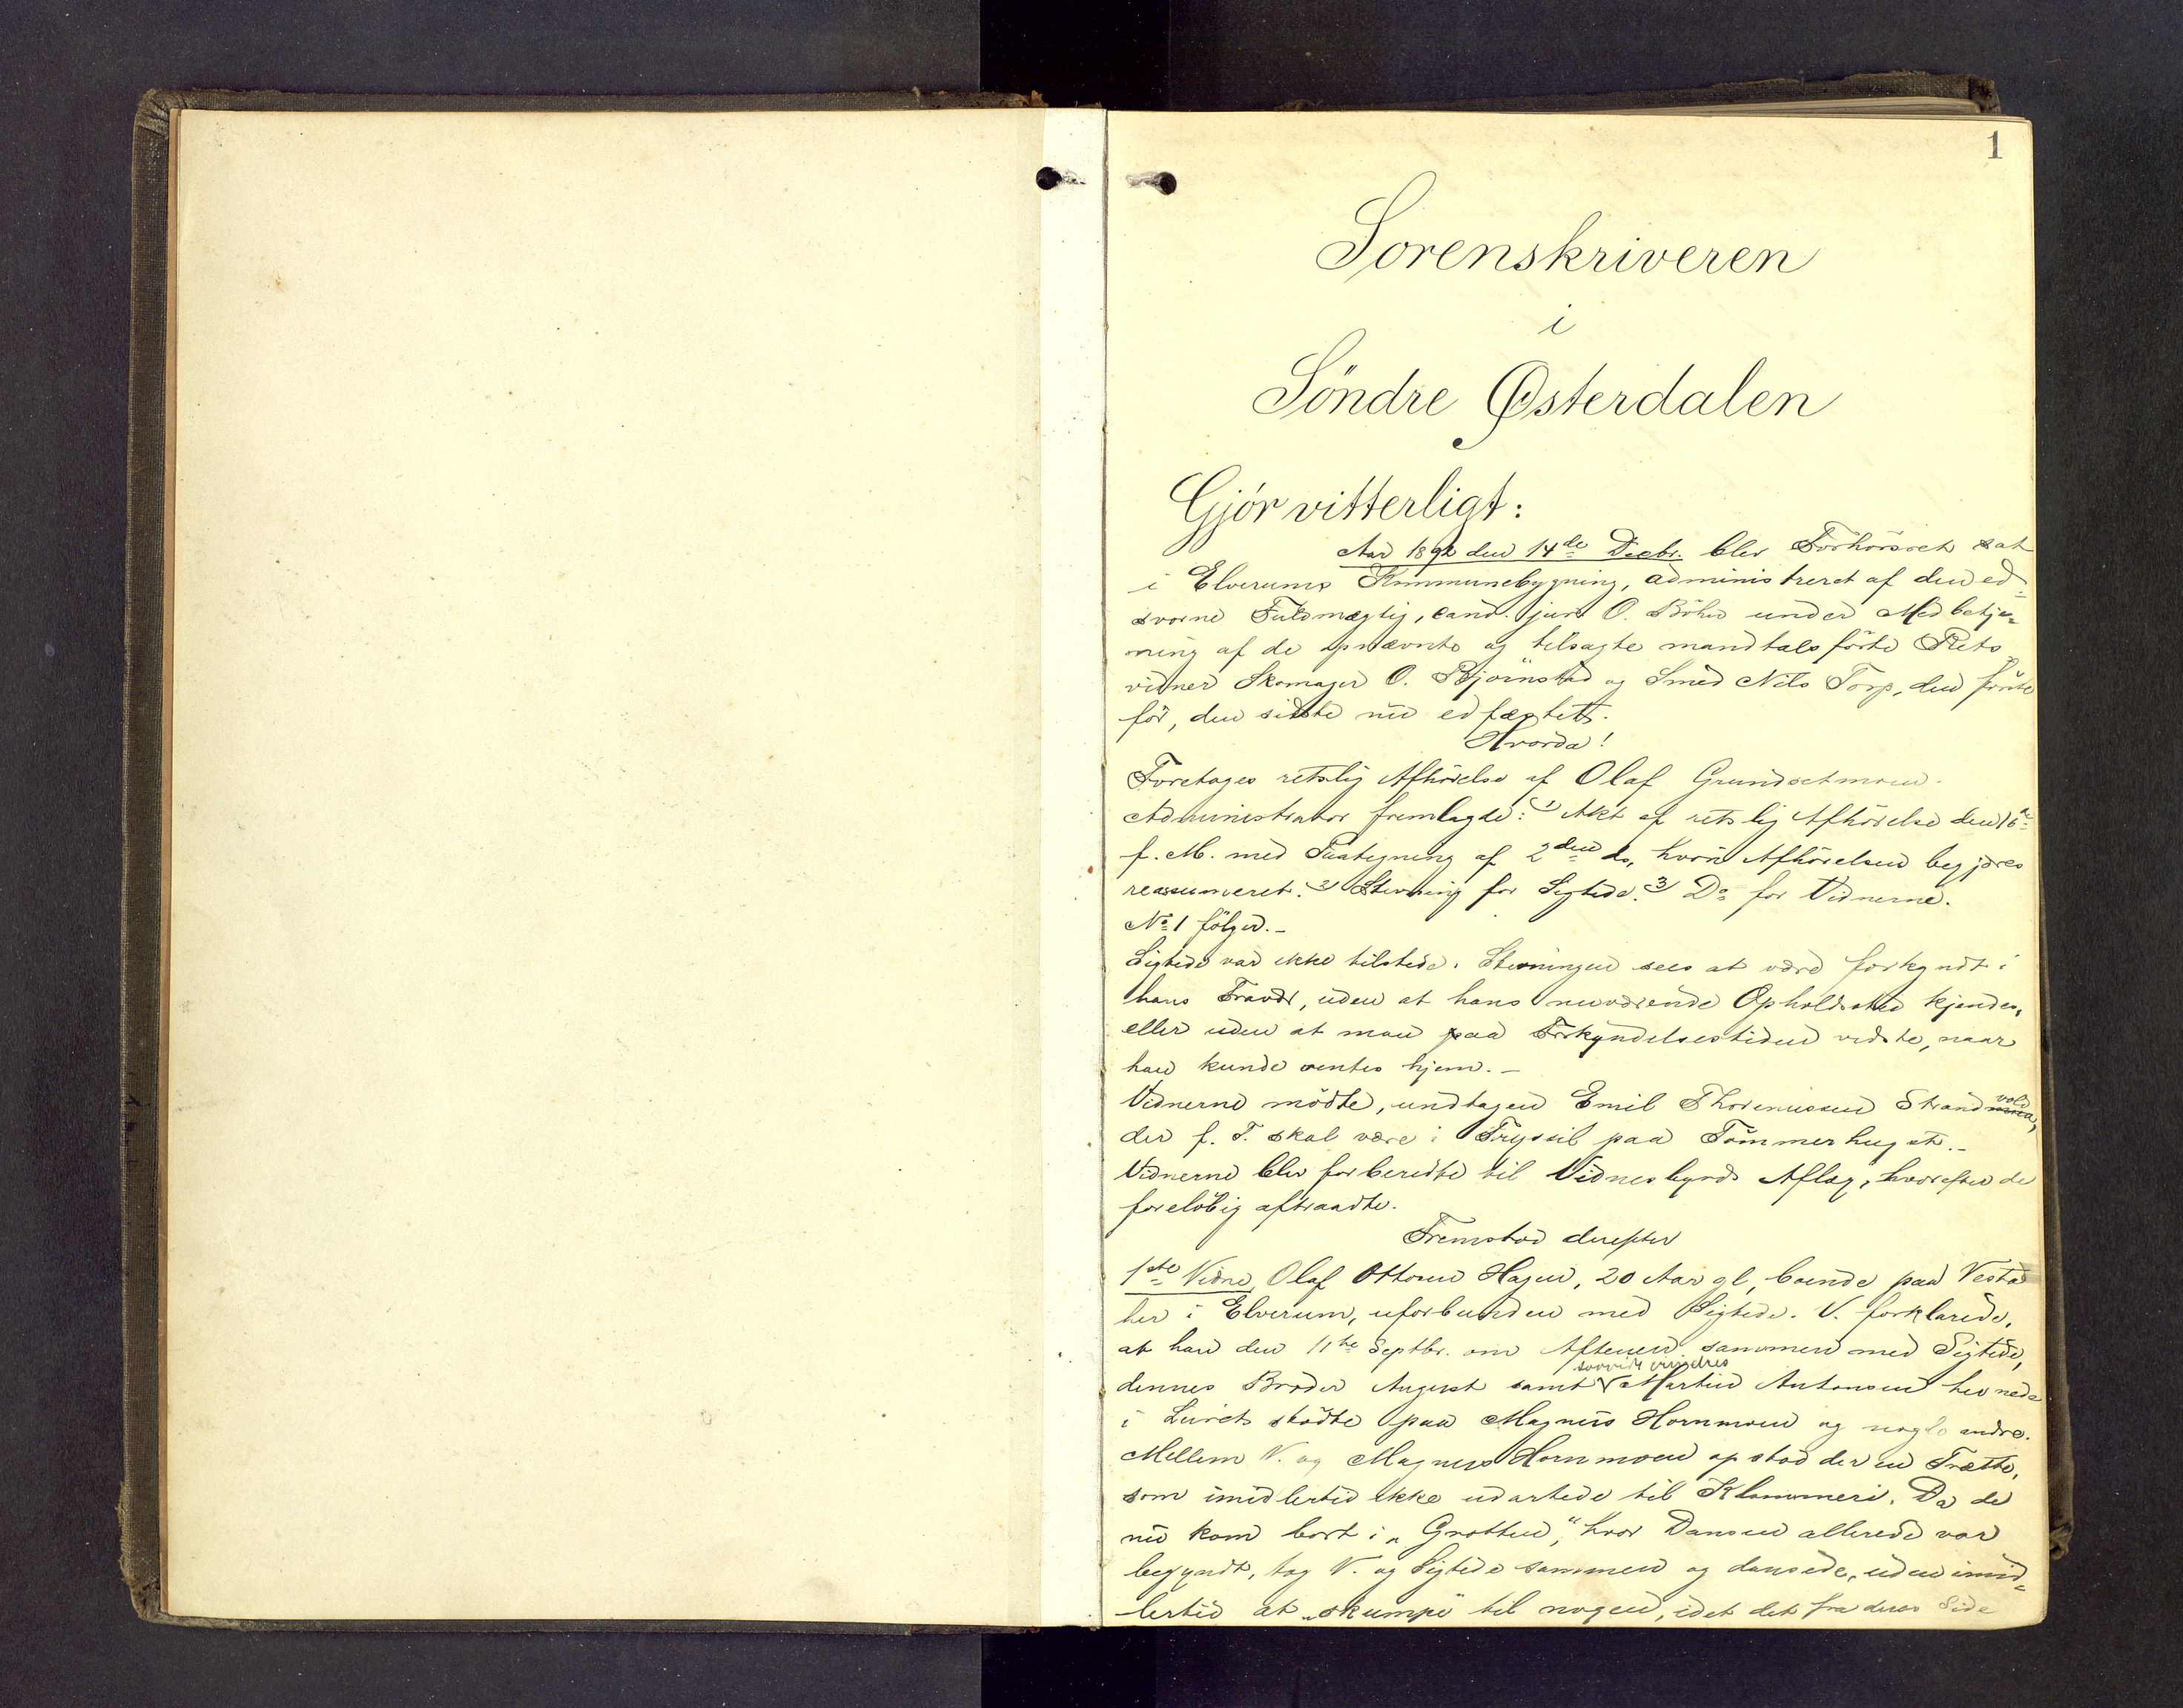 1
Sorenskriveren
i
Söndre Østerdalen
Gjör vitterligt:
Aar 1892 den 14de Decbr. blev Forhörsret sat
i Elverums Kommunebygning, administreret af den ed=
svorne Fuldmægtig, cand. jur. O. Böhn under Medbetje=
ning af de opnævnte og tilsagte mandtalsförte Rets
vidner Skomager O. Björnstad og Smed Nils Torp, den förste
för, den sidste nu edfæstet.
Hvorda!
Foretages retslig Afhörelse af Olaf Grundsetmoen.
Administrator fremlagde: 1) Akt af retslig Afhörelse den 16de
f. M. med Paategning af 2den ds, hvori Afhörelsen begjæres
reassumeret. 2) Stevning for Sigtede. 3) Do for Vidnerne.
No 1 fölger.-
Sigtede var ikke tilstede. Stevningen sees at være forkyndt i
hans Fravær, uden at hans nuværende Opholdssted kjendes,
eller uden at man paa Forkyndelsestiden vidste, naar
han kunde ventes hjem.-
Vidnerne mödte, undtagen Emil Thorenussen Strandvold,
der f. T. skal være i Trysil paa Tömmerhugst.-
Vidnerne blev forberedte til Vidnesbyrds Aflæg, hvorefter de
forelöbig aftraadte.
Fremstod derefter
1ste Vidne, Olaf Ottosen Hagen, 20 Aar gl, boende paa Vestad
her i Elverum, uforbunden med Sigtede. V. forklarede,
at han den 11te Septbr. om Aftenen sammen med Sigtede,
dennes Broder August samt saavidt erindres Martin Antonsen her nede
i Leiret stödte paa Magnus Hornmoen og nogle andre.
Mellem V. og Magnus Hornmoen opstod der en Trætte,
som imidlertid ikke udartede til Klammeri. Da de
nu kom bort i „Grotten“, hvor Dansen allerede var
begyndt, tog V. og Sigtede sammen og dansede, uden imid=
lertid at „skumpe“ til nogen, idet det fra deres Side